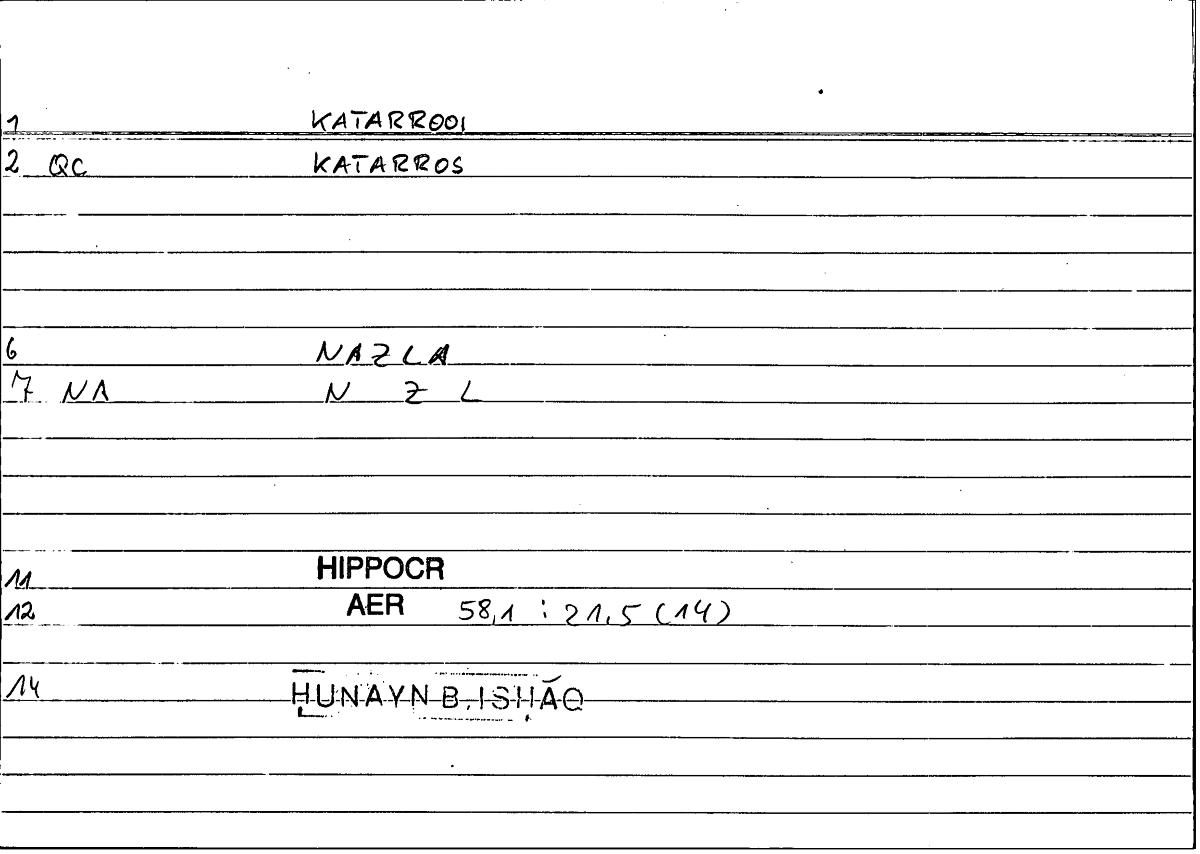 1 KATARROOI
2 QC KATARROS
6 NAZLA
7 NA N Z L
11 HIPPOCR
12 AER 58,1 : 21,5 (14)
14 ḤUNAYN B. ISḤĀQ